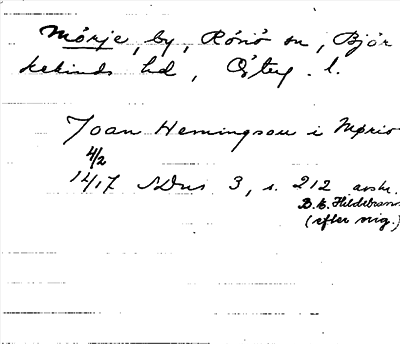 Mörje, by, Rönö sn, Björ
kekinds hd, Österg. l.
Joan Hemingson i Mørio
4/2
1417 SDns 3, s. 212 avskr.
B. E. Hildebrand
(efter orig.)